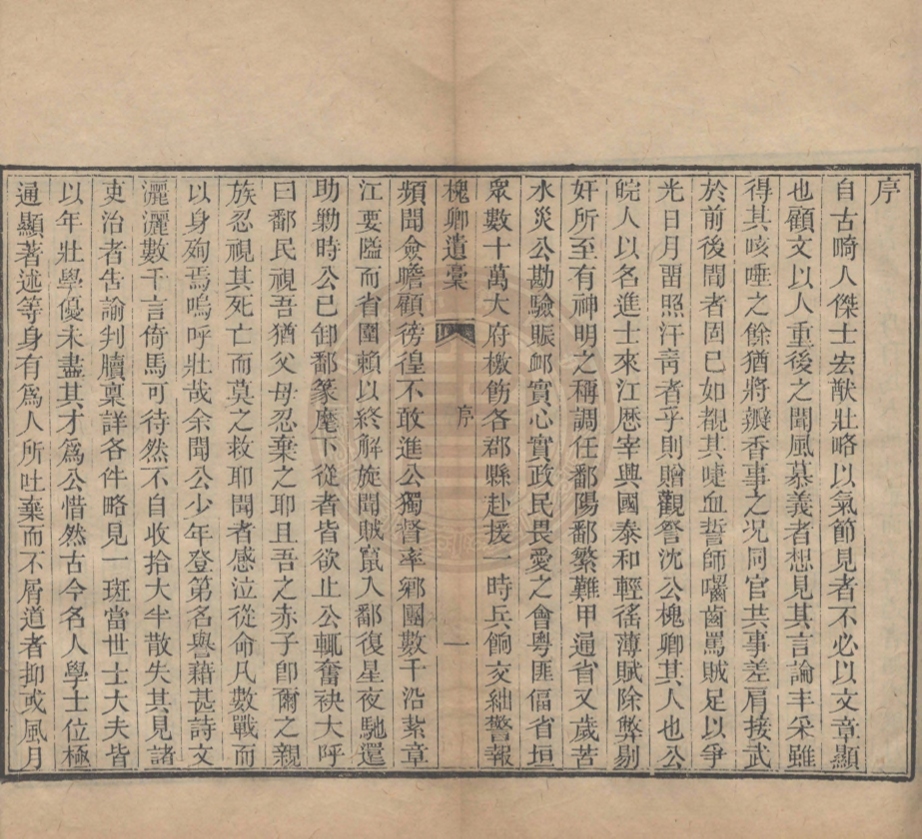 序
自古畸人傑士宏猷壯略以氣節見者不必以文章顯
也顧文以人重後之聞風慕義者想見其言論丰采雖
得其咳唾之餘猶將瓣香事之况同官共事差肩接武
於前後間者固已如覩其啑血誓師嚼齒罵賊足以爭
光日月畱照汗靑者乎則贈觀詧沈公槐卿其人也公
皖人以名進士來江歷宰興國泰和輕徭薄賦除弊剔
奸所至有神明之稱調任鄱陽鄱繁難甲通省又歲苦
水災公勘驗賑卹實心實政民畏愛之會粵匪偪省垣
眾數十萬大府檄飭各郡縣赴援一時兵餉支絀警報
槐卿遺稾
序
一
頻聞僉瞻顧徬徨不敢進公獨督率鄉團數千沿紮章
江要隘而省圍賴以終解旋聞賊竄入鄱復星夜馳還
助勦時公已卸鄱篆麾下從者皆欲止公輒奮袂大呼
曰鄱民視吾猶父母忍棄之耶且吾之赤子卽爾之親
族忍視其死亡而莫之救耶聞者感泣從命凡數戰而
以身殉焉嗚呼壯哉余聞公少年登第名譽藉甚詩文
灑灑數千言倚馬可待然不自收拾大半散失其見諸
吏治者告諭判牘稟詳各件略見一斑當世士大夫皆
以年壯學優未盡其才爲公惜然古今名人學士位極
通顯著述等身有爲人所吐棄而不屑道者抑或風月